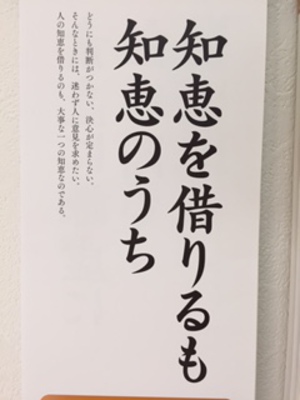 知恵を借りるも
知恵のうち
どうにも判断がつかない、決心が定まらない、
そんなときには、迷わず人に意見を求めたい。
人の知恵を借りるのも、大事な一つの知恵なのである。